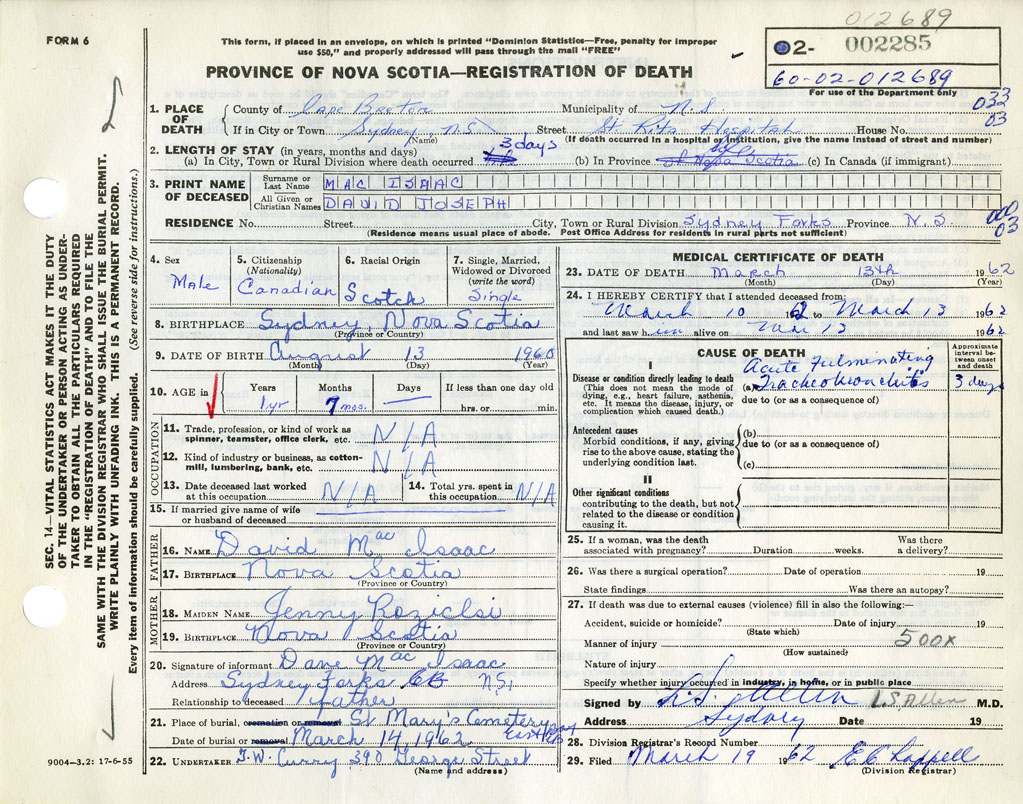 012689
FORM 6
This form, if placed in an envelope, on which is printed "Dominion Statistics—Free, penalty for improper
use $50," and properly addressed will pass through the mail "FREE"
02- 002285
60-02-012689
For use of the Department only
PROVINCE OF NOVA SCOTIA—REGISTRATION OF DEATH
033
03
1. PLACE OF DEATH
County of Cape Breton Municipality of N.S.
If in City or Town Sydney, N.S. Street St Rita Hospital House No.
(Name) (If death occurred in a hospital or institution, give the name instead of street and number)
2. LENGTH OF STAY (in years, months and days)
(a) In City, Town or Rural Division where death occurred 3 days (b) In Province Nova Scotia (c) In Canada (if immigrant)
3. PRINT NAME OF DECEASED
Surname or Last Name MAC ISAAC
All Given or Christian Names DAVID JOSEPH
000
03
RESIDENCE No. Street City, Town or Rural Division Sydney Forks Province N.S.
(Residence means usual place of abode. Post Office Address for residents in rural parts not sufficient)
4. Sex Male
5. Citizenship (Nationality) Canadian
6. Racial Origin Scotch
7. Single, Married, Widowed or Divorced (write the word) Single
8. BIRTHPLACE Sydney, Nova Scotia
(Province or Country)
9. DATE OF BIRTH August 13 1960
(Month) (Day) (Year)
10. AGE in Years 1 yr Months 7 mos. Days — If less than one day old hrs. or min.
OCCUPATION
11. Trade, profession, or kind of work as
spinner, teamster, office clerk, etc. N/A
12. Kind of industry or business, as cotton-
mill, lumbering, bank, etc. N/A
13. Date deceased last worked
at this occupation N/A
14. Total yrs. spent in
this occupation N/A
15. If married give name of wife
or husband of deceased
FATHER
16. NAME David Mac Isaac
17. BIRTHPLACE Nova Scotia
(Province or Country)
MOTHER
18. MAIDEN NAME Jenny
19. BIRTHPLACE Nova Scotia
(Province or Country)
20. Signature of informant Dave Mac Isaac
Address Sydney Forks CB N.S.
Relationship to deceased father
21. Place of burial, cremation or removal St Mary's Cemetery
East Bay
Date of burial or removal March 14 1962
22. UNDERTAKER T.W. Curry 390 George Street
(Name and address)
MEDICAL CERTIFICATE OF DEATH
23. DATE OF DEATH March 13th 1962
(Month) (Day) (Year)
24. I HEREBY CERTIFY that I attended deceased from:
March 10 1962 to March 13 1962
and last saw him alive on Mar 13 1962
CAUSE OF DEATH
Approximate interval between onset and death
I
Disease or condition directly leading to death
(This does not mean the mode of
dying, e.g., heart failure, asthenia,
etc. It means the disease, injury, or
complication which caused death.)
(a) Acute Fulminating
Tracheobronchitis 3 days
due to (or as a consequence of)
Antecedent causes
Morbid conditions, if any, giving
rise to the above cause, stating the
underlying condition last.
(b)
due to (or as a consequence of)
(c)
II
Other significant conditions
contributing to the death, but not
related to the disease or condition
causing it.
25. If a woman, was the death Was there
associated with pregnancy? Duration weeks. a delivery?
26. Was there a surgical operation? Date of operation 19
State findings Was there an autopsy?
27. If death was due to external causes (violence) fill in also the following:—
Accident, suicide or homicide? Date of injury 19
(State which)
Manner of injury 500x
(How sustained)
Nature of injury
Specify whether injury occurred in industry, in home, or in public place
Signed by L.S. Allen L.S. Allen M.D.
Address Sydney Date 19
28. Division Registrar's Record Number
29. Filed March 19 1962
(Division Registrar)
9004—3.2: 17-6-55
SEC. 14—VITAL STATISTICS ACT MAKES IT THE DUTY
OF THE UNDERTAKER OR PERSON ACTING AS UNDER-
TAKER TO OBTAIN ALL THE PARTICULARS REQUIRED
IN THE "REGISTRATION OF DEATH" AND TO FILE THE
SAME WITH THE DIVISION REGISTRAR WHO SHALL ISSUE THE BURIAL PERMIT.
WRITE PLAINLY WITH UNFADING INK. THIS IS A PERMANENT RECORD.
Every item of information should be carefully supplied. (See reverse side for instructions.)